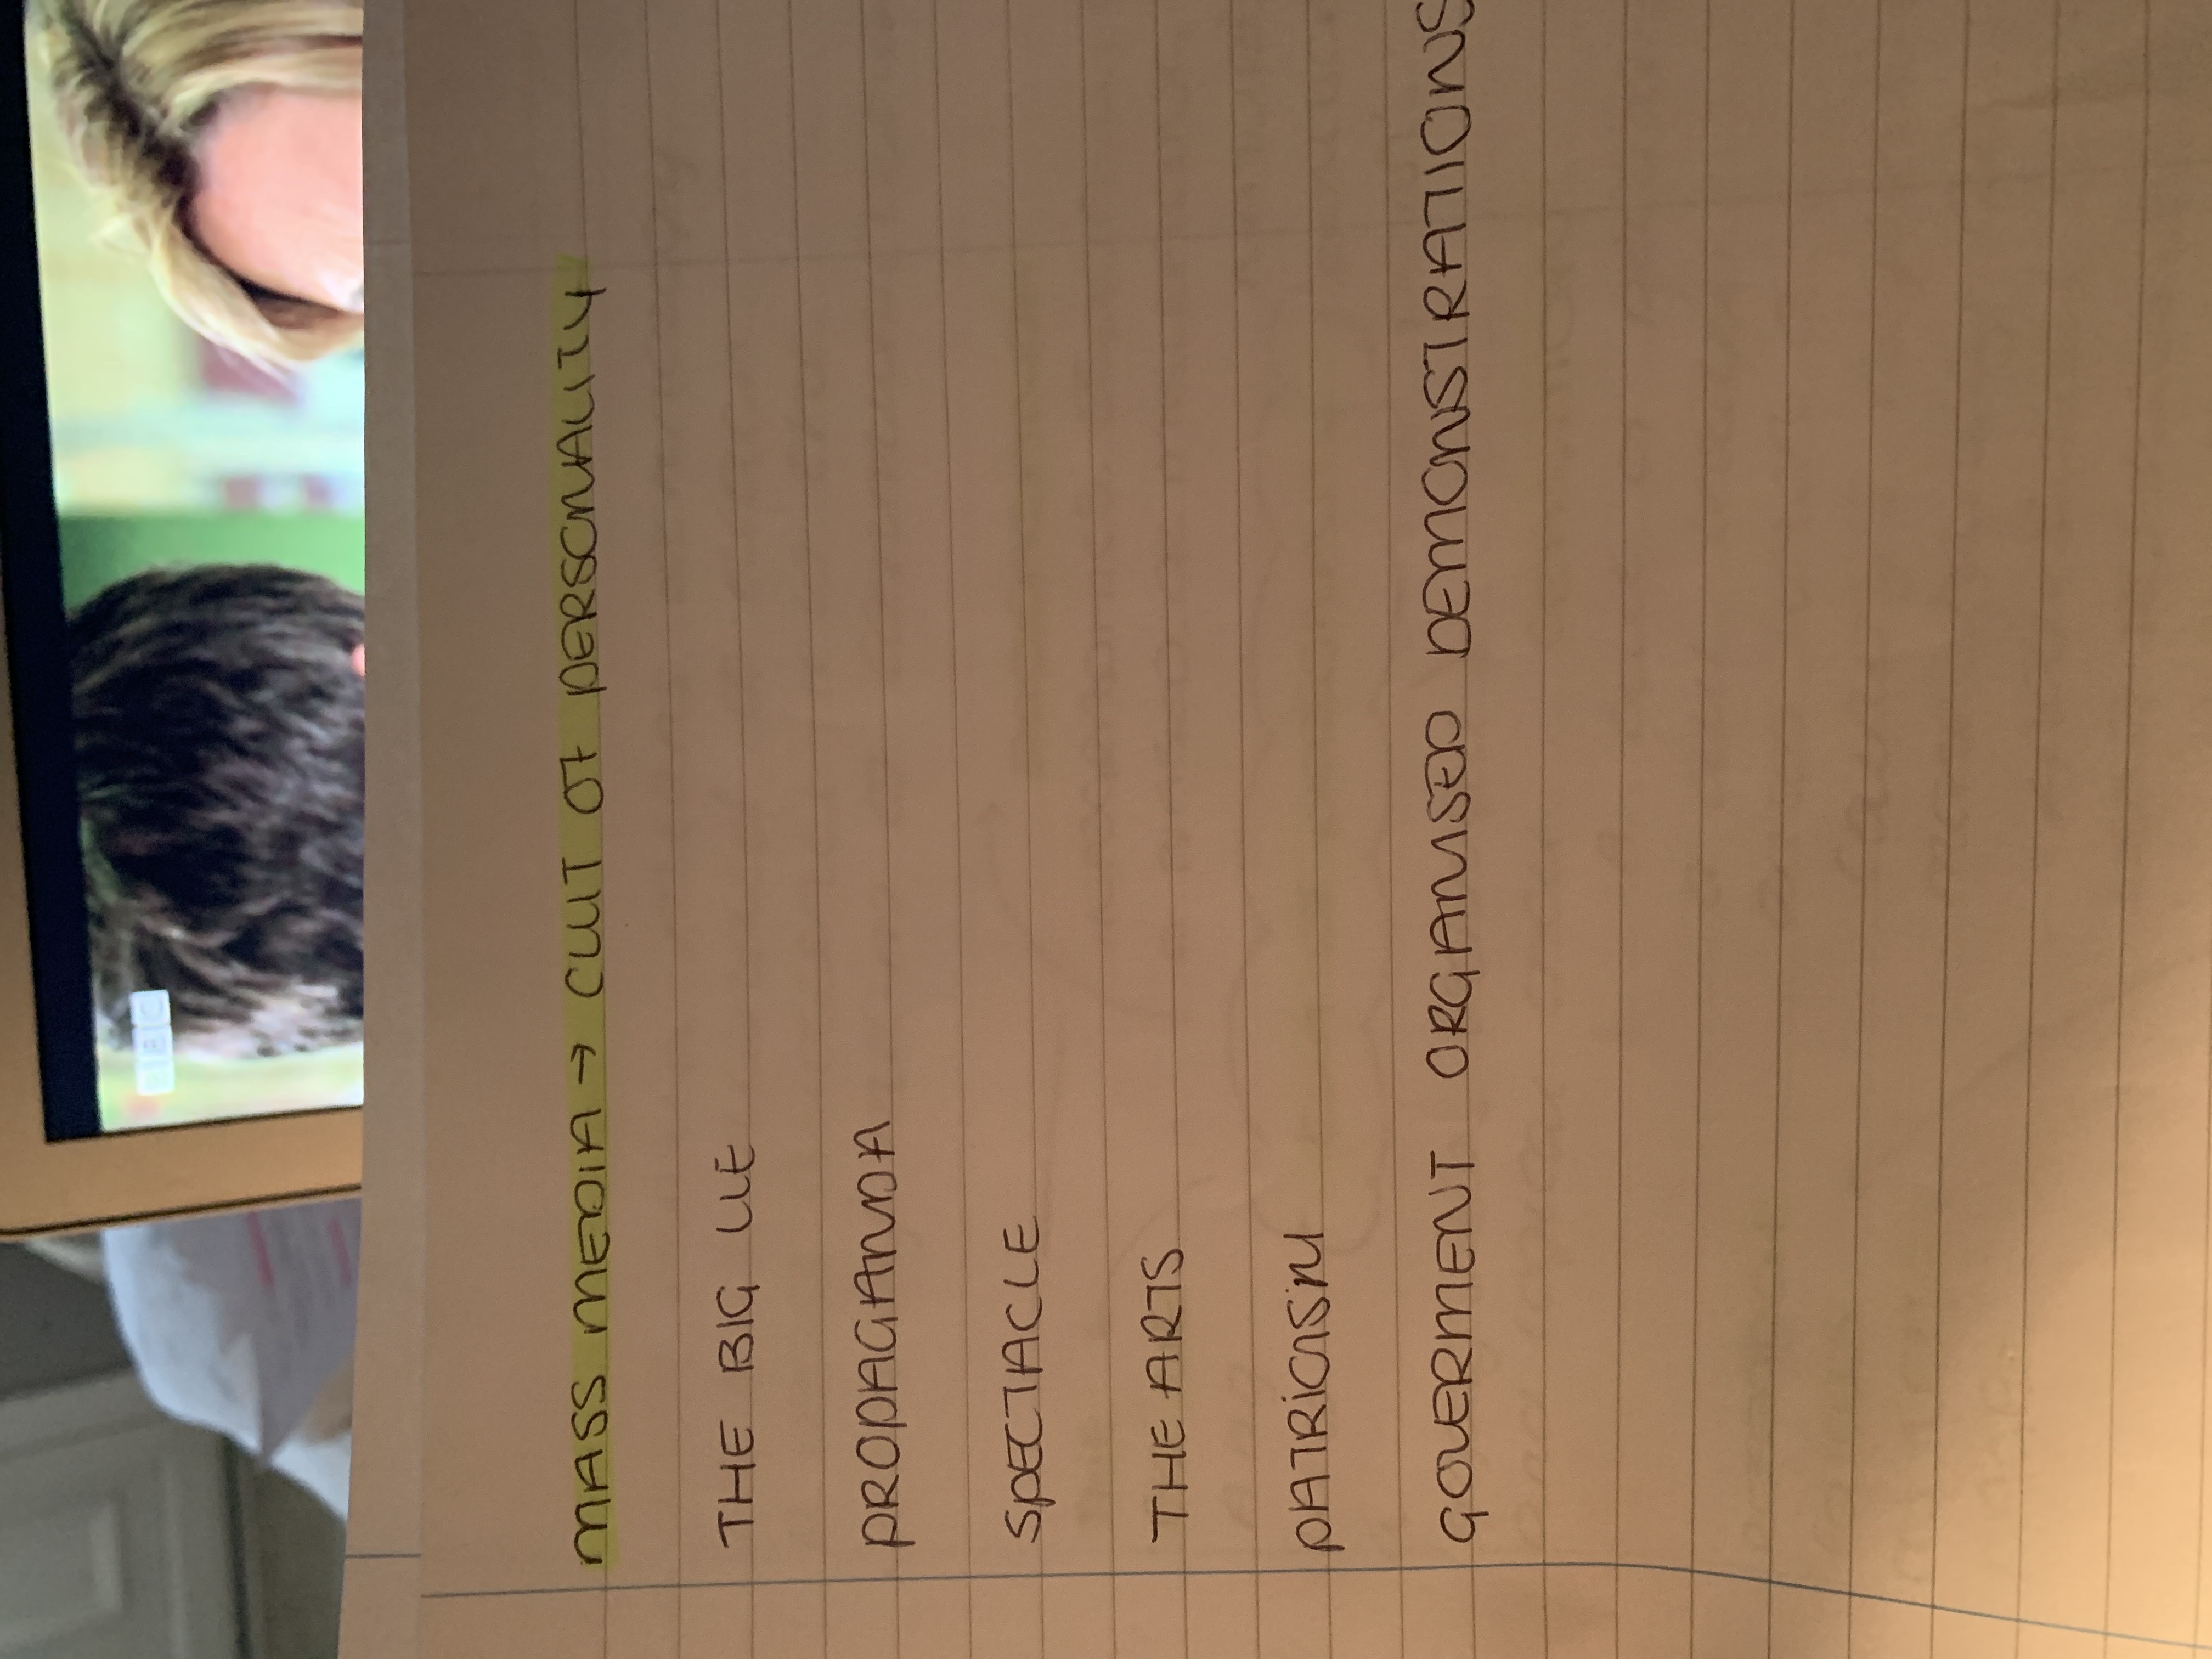 MASS MEDIA → CULT OF PERSONALITY
THE BIG LIE
PROPAGANDA
SPECTACLE
THE ARTS
PATRIOTISM
GOVERNMENT ORGANISED DEMONSTRATIONS
BBC